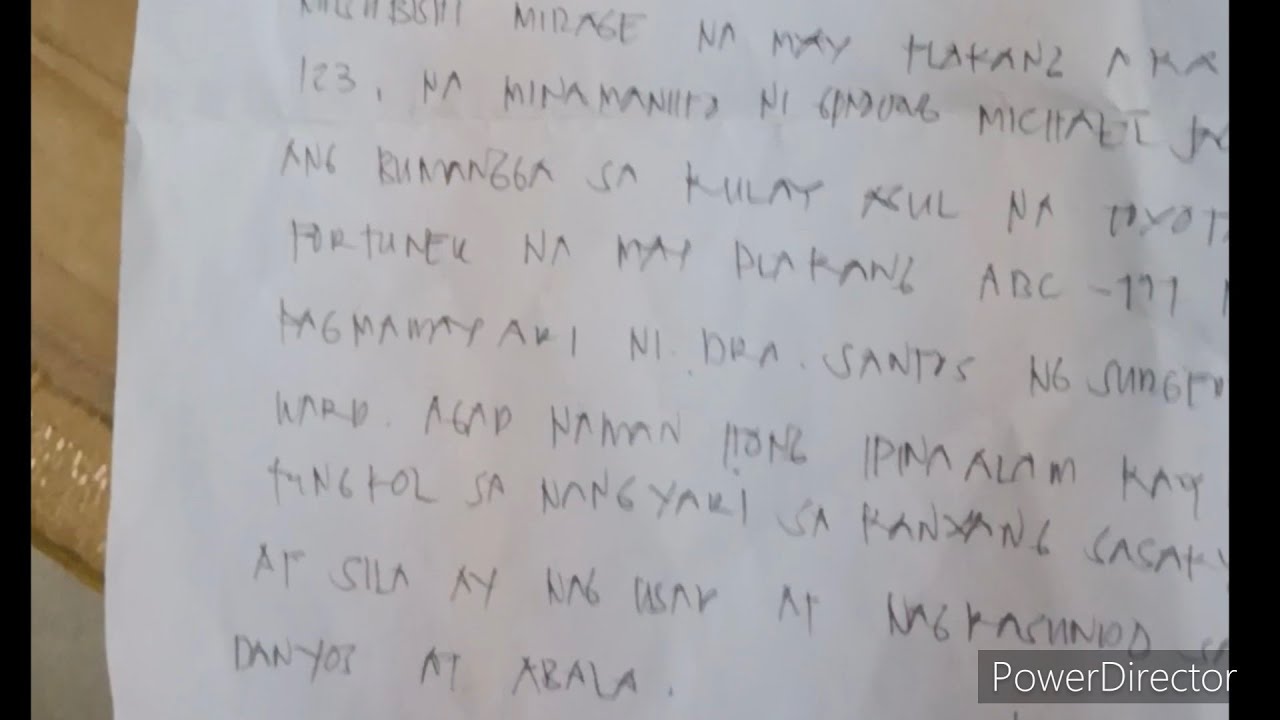 MITSUBISHI MIRAGE NA MAY PLAKANG AKA
123, NA MINAMANEHO NI GINOONG MICHAEL
ANG BUMANGGA SA KULAY ASUL NA TOYOTA
FORTUNER NA MAY PLAKANG ABC-777
PAGMAMAY ARI NI DRA. SANTOS NG
WARD. AGAD NAMAN ITONG IPINA ALAM KAY
TUNGKOL SA NANGYARI SA KANYANG
AT SILA AY NAG USAP AT NAGKASUNDO SA
DANYOS AT ABALA.
PowerDirector